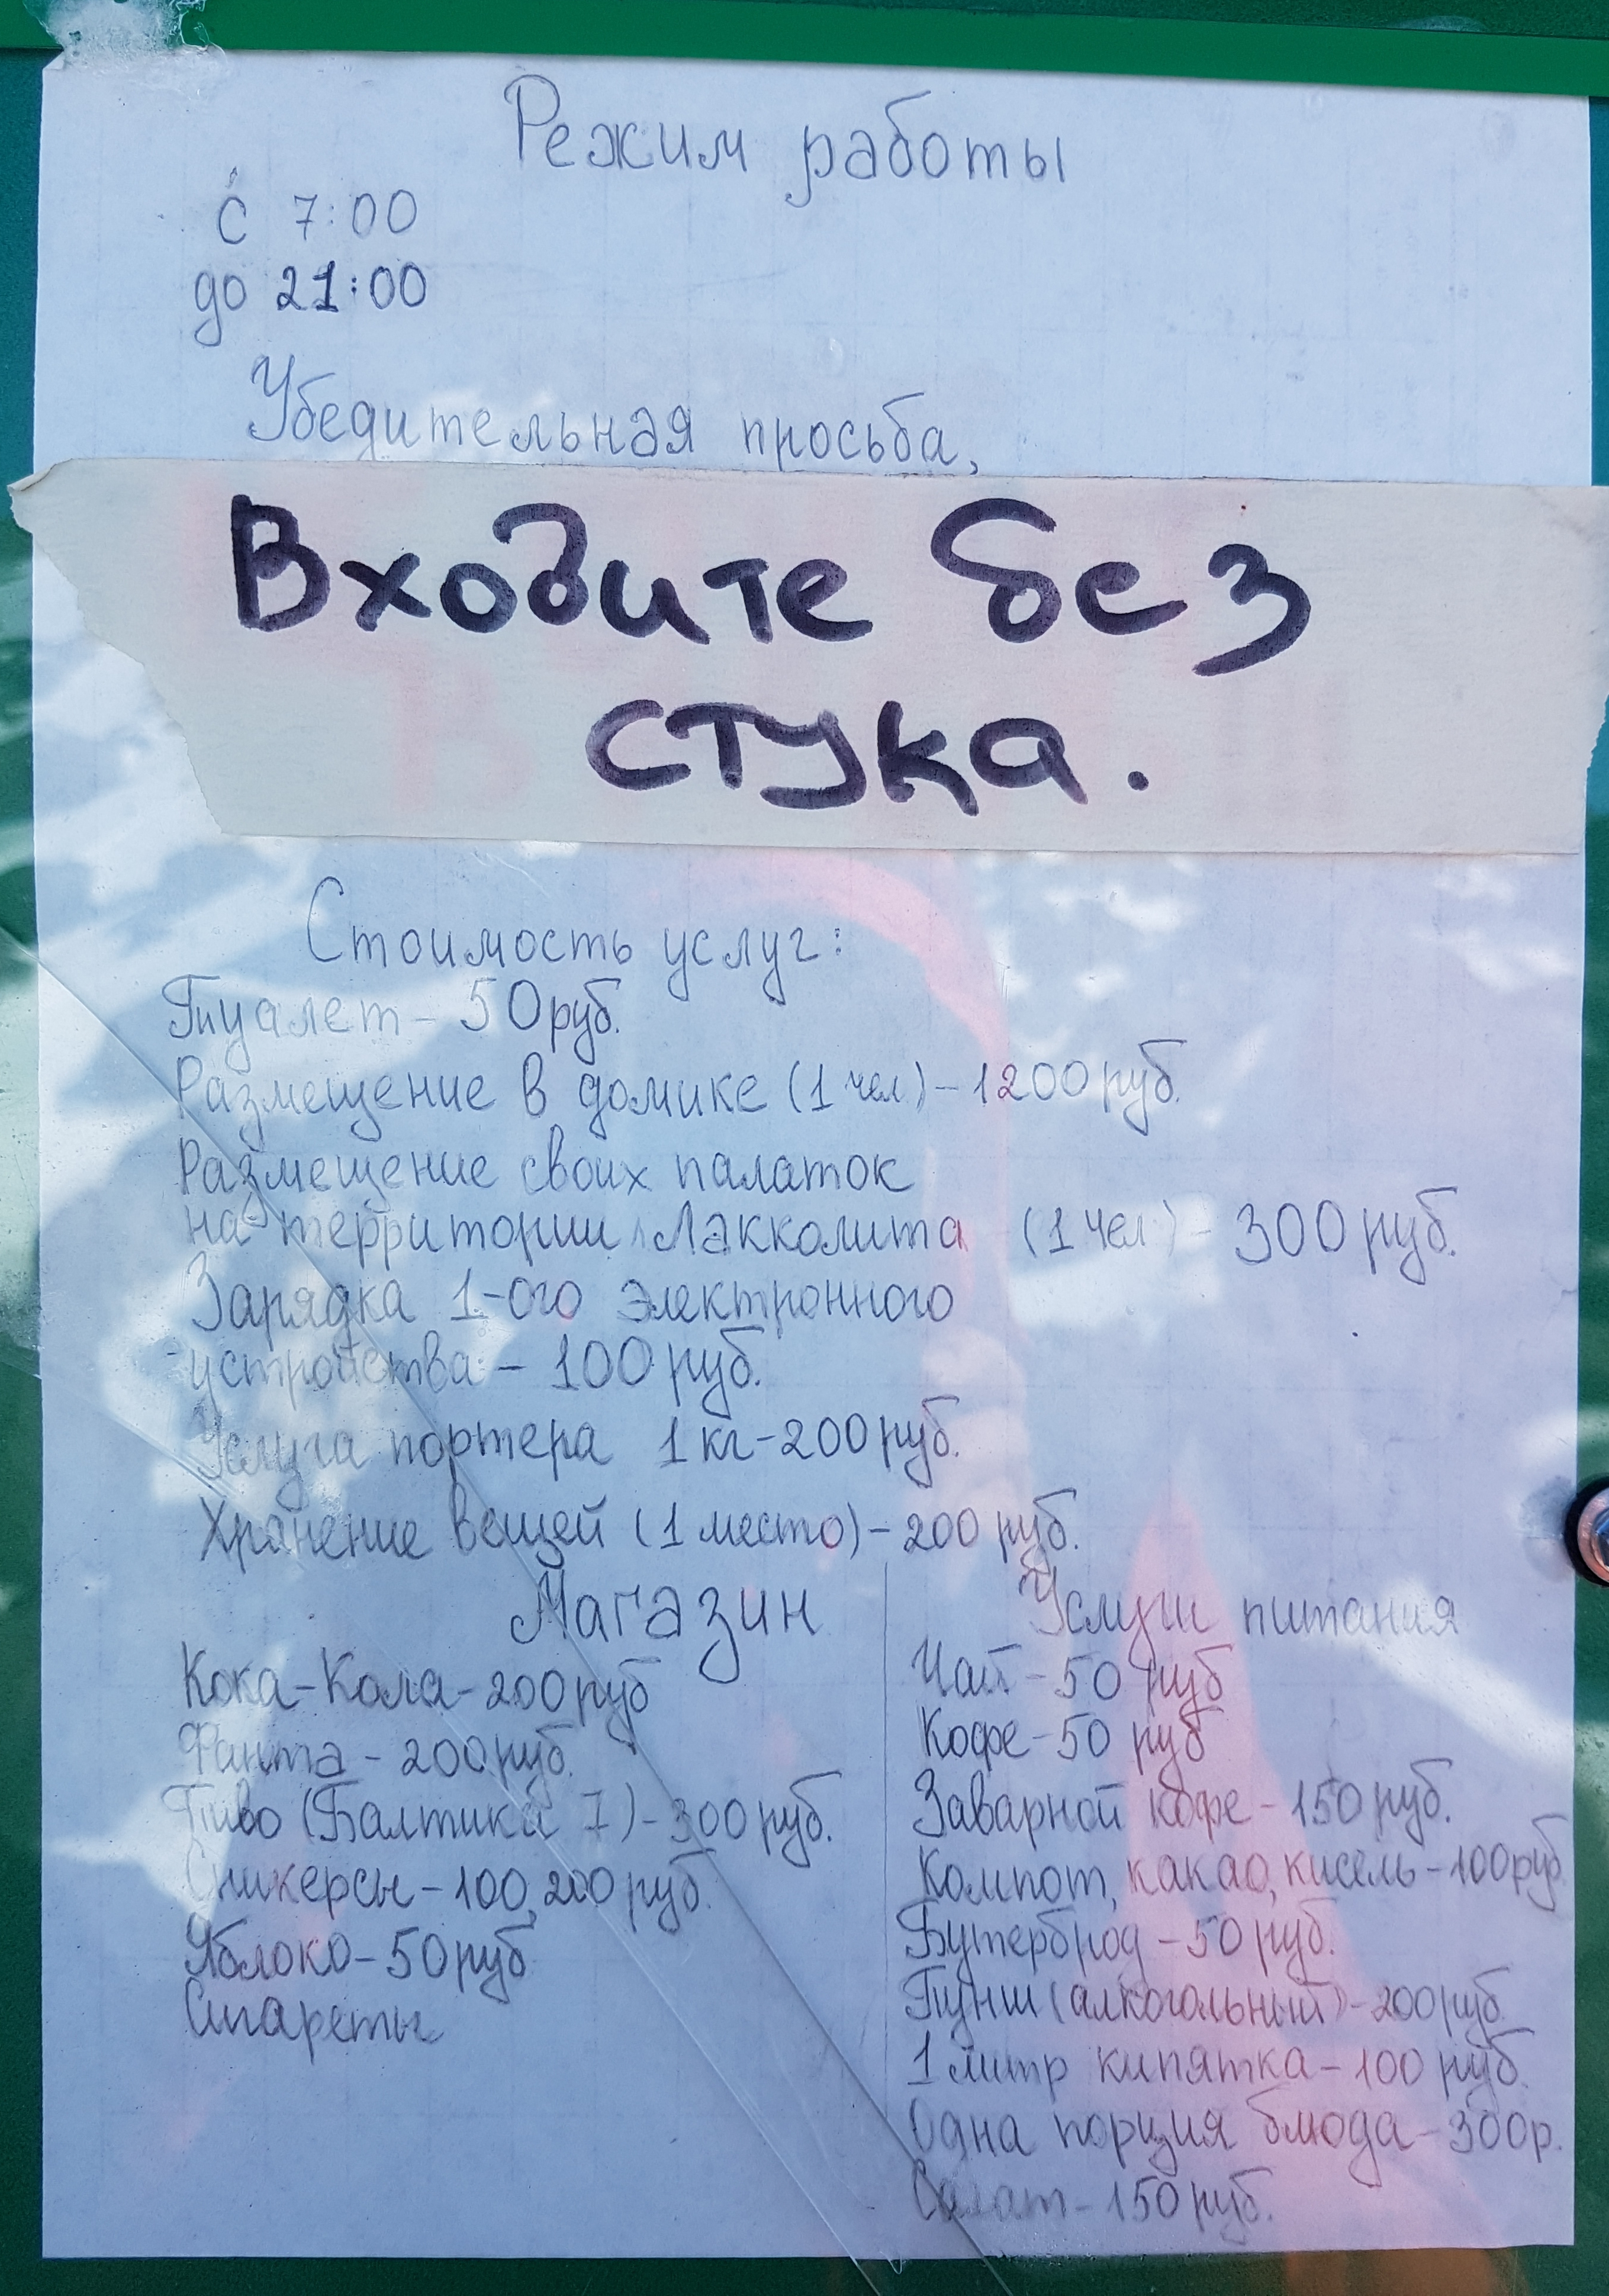 Режим работы
с 7:00
до 21:00
Убедительная просьба,
Входите без
стука.
Стоимость услуг:
Туалет - 50 руб.
Размещение в домике (1 чел) - 1200 руб.
Размещение своих палаток
на территории Лакколита (1 чел) - 300 руб.
Зарядка 1-ого электронного
устройства - 100 руб.
Услуга портера 1 кг - 200 руб.
Хранение вещей (1 место) - 200 руб.
Магазин
Кока-Кола - 200 руб
Фанта - 200 руб.
Пиво (Балтика 7) - 300 руб.
Сникерсы - 100, 200 руб.
Яблоко - 50 руб
Сигареты
Услуги питания
Чай - 50 руб
Кофе - 50 руб
Заварной кофе - 150 руб.
Компот, какао, кисель - 100 руб.
Бутерброд - 50 руб.
Пунш (алкогольный) - 200 руб.
1 литр кипятка - 100 руб.
Одна порция блюда - 300 р.
Салат - 150 руб.